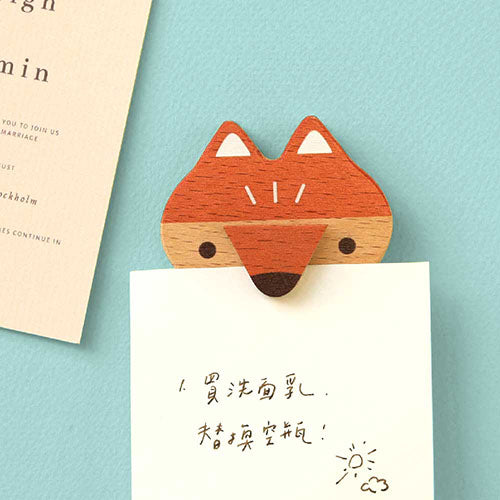 ign
min
YOU TO JOIN US
MARRIAGE
UST
ockholm
ES CONTINUE IN
1. 買洗面乳.
替換空瓶!